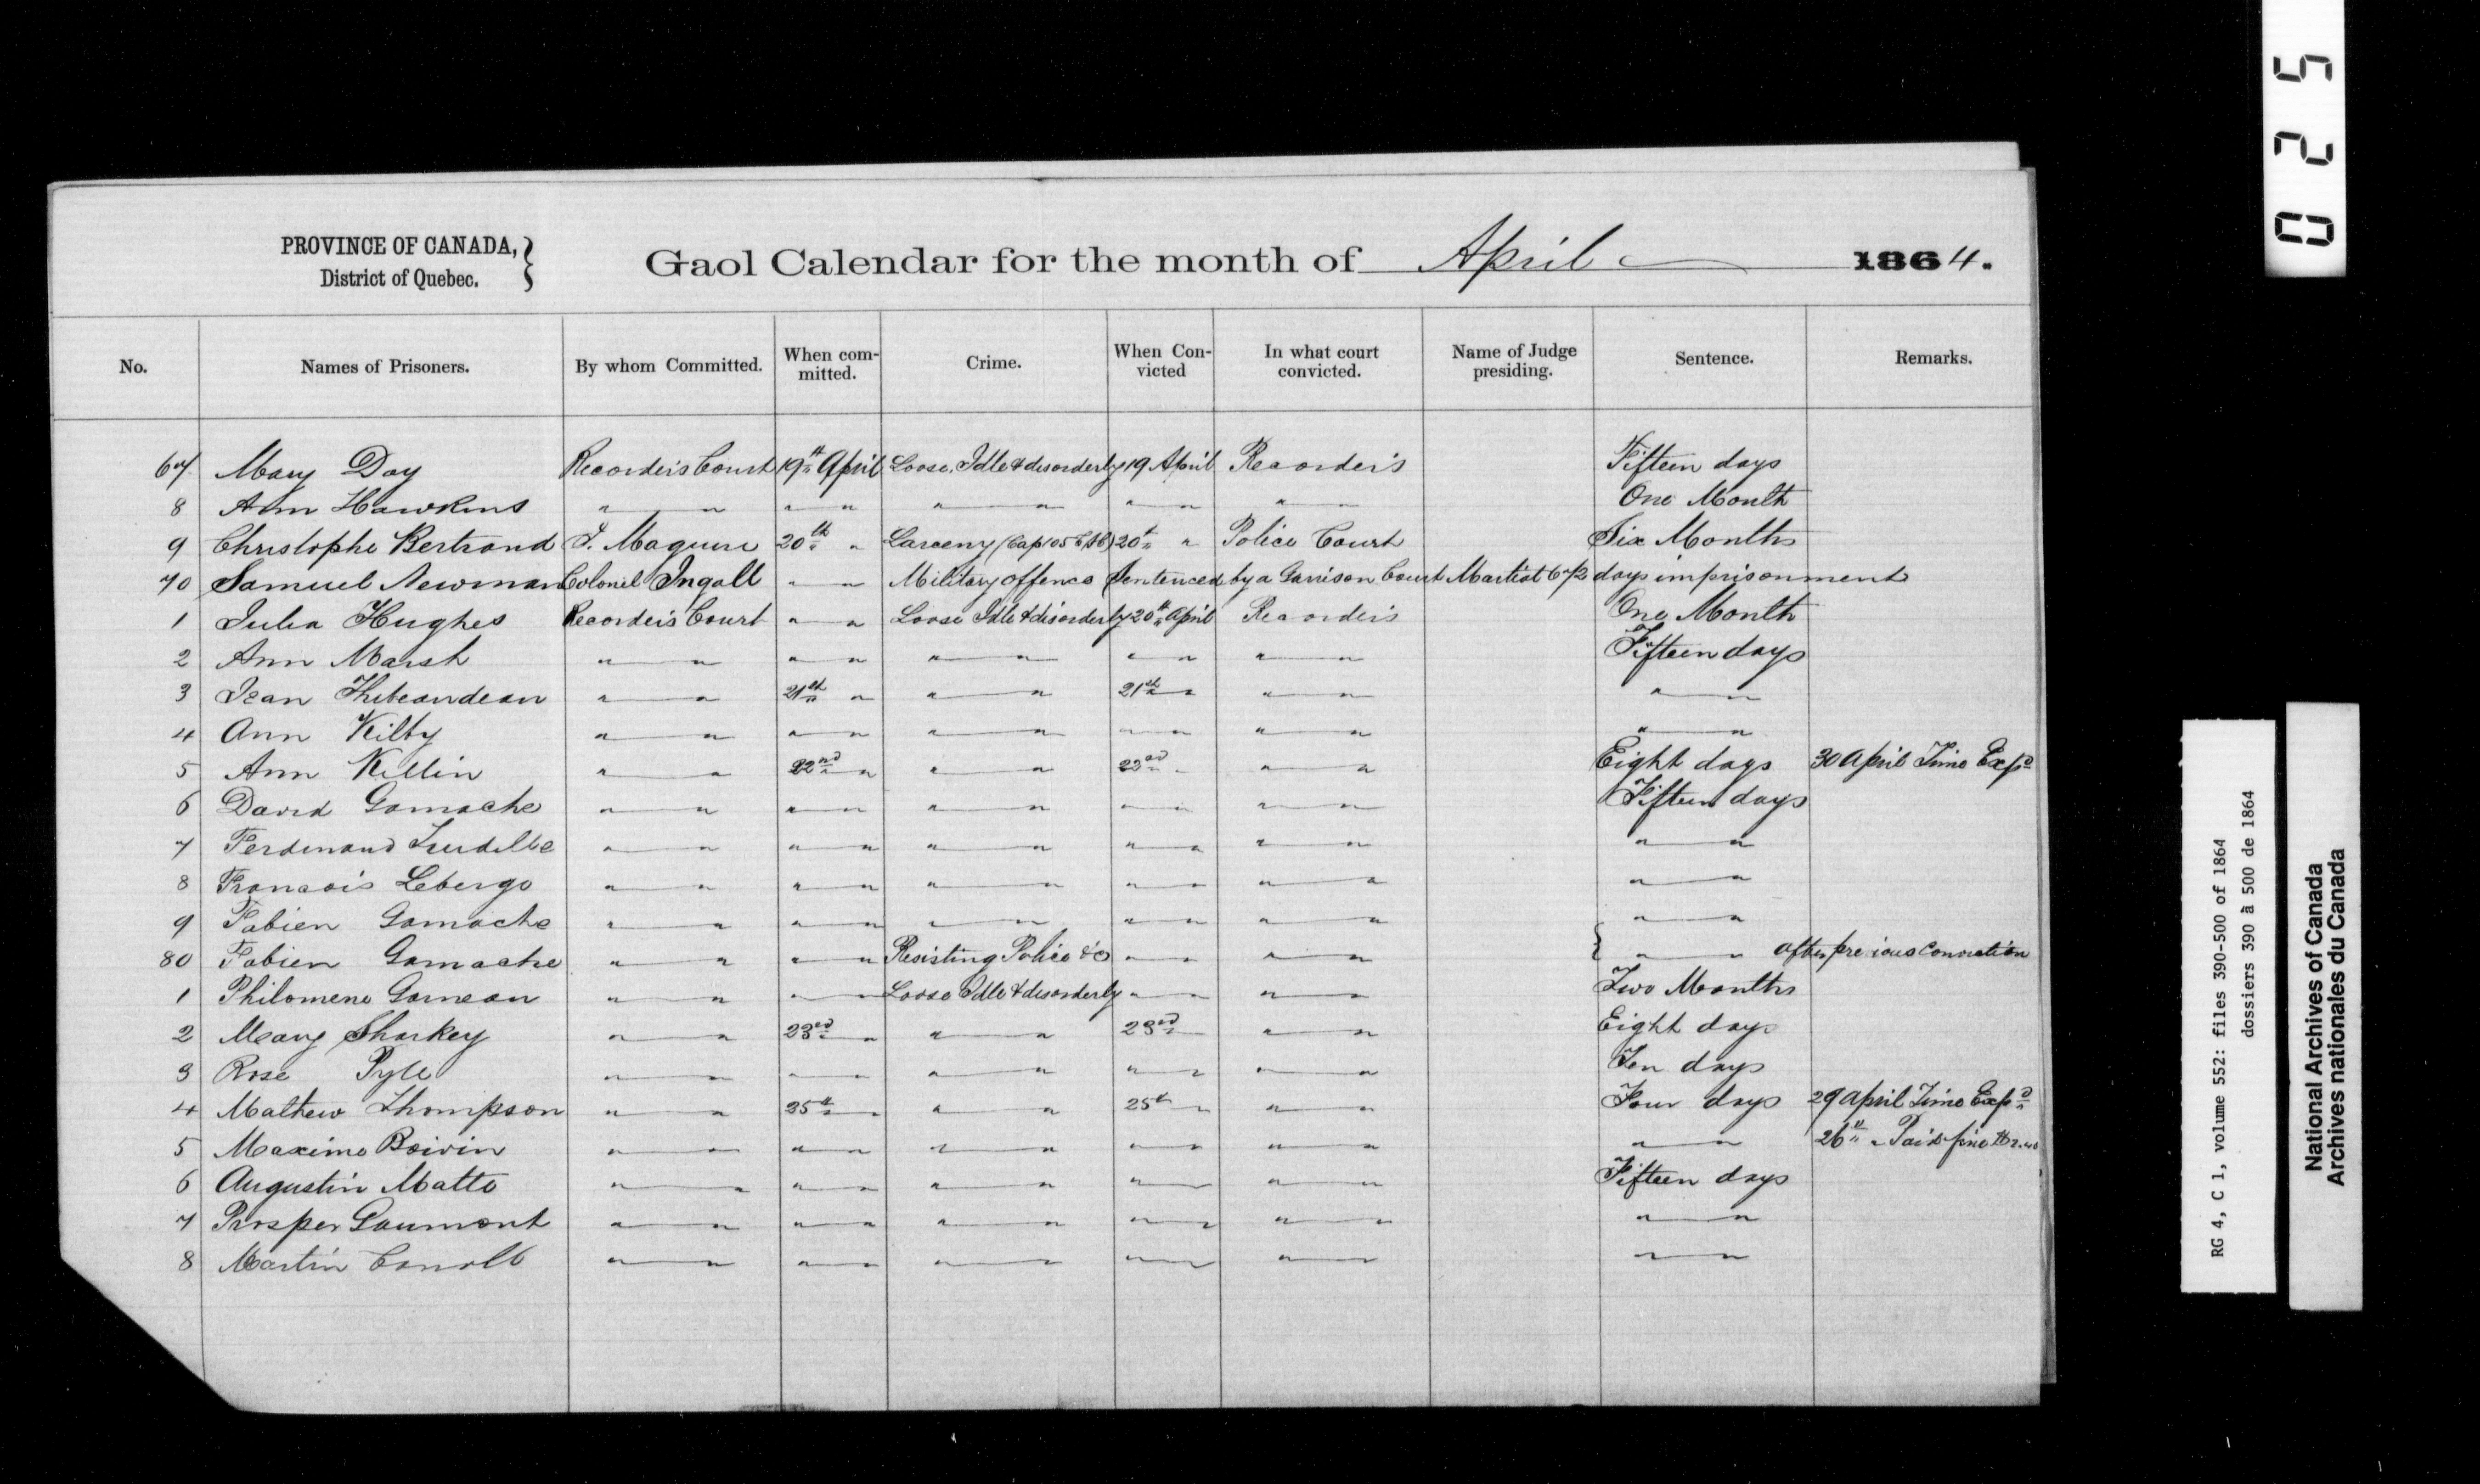 PROVINCE OF CANADA,
District of Quebec.
Gaol Calendar for the month of April 1864.
No. Names of Prisoners. By whom Committed. When committed. Crime. When Convicted In what court convicted. Name of Judge presiding. Sentence. Remarks.
67 Mary Day Recorder's Court 19th April Loose, Idle & disorderly 19 April Recorder's Fifteen days
8 Ann Hawkins " " " " " " " " " " One Month
9 Christophe Bertrand J. Maguire 20th " Larceny (Cap 105 C.S.C) 20th " Police Court Six Months
70 Samuel Newman Colonel Ingall " " Military offence Sentenced by a Garrison Court Martial days imprisonment
1 Julia Hughes Recorder's Court " " Loose Idle & disorderly 20th April Recorder's One Month
2 Ann Marsh " " " " " " " " " " Fifteen days
3 Jean Thibeaudeau " " 21st " " " 21st " " " " "
4 Ann Kilby " " " " " " " " " " " "
5 Ann Killin " " 22nd " " " 22nd " " " Eight days 30 April Time Expd
6 David Gamache " " " " " " " " " " Fifteen days
7 Ferdinand " " " " " " " " " " " "
8 Francois Leberge " " " " " " " " " " " "
9 Fabien Gamache " " " " " " " " " " " "
80 Fabien Gamache " " " " Resisting Police &c " " " " " " after previous conviction
1 Philomene Garneau " " " " Loose Idle & disorderly " " " " Two Months
2 Mary Sharkey " " 23rd " " " 23rd " " " Eight days
3 Rose Pyle " " " " " " " " " " Ten days
4 Mathew Thompson " " 25th " " " 25th " " " Four days 29 April Time Expd
5 Maxime Boivin " " " " " " " " " " " " 26th " Paid fine
6 Augustin Matte " " " " " " " " " " Fifteen days
7 Prosper Gaumont " " " " " " " " " " " "
8 Martin Carroll " " " " " " " " " " " "
025
RG 4, C 1, volume 552: files 390-500 of 1864
dossiers 390 à 500 de 1864
National Archives of Canada
Archives nationales du Canada